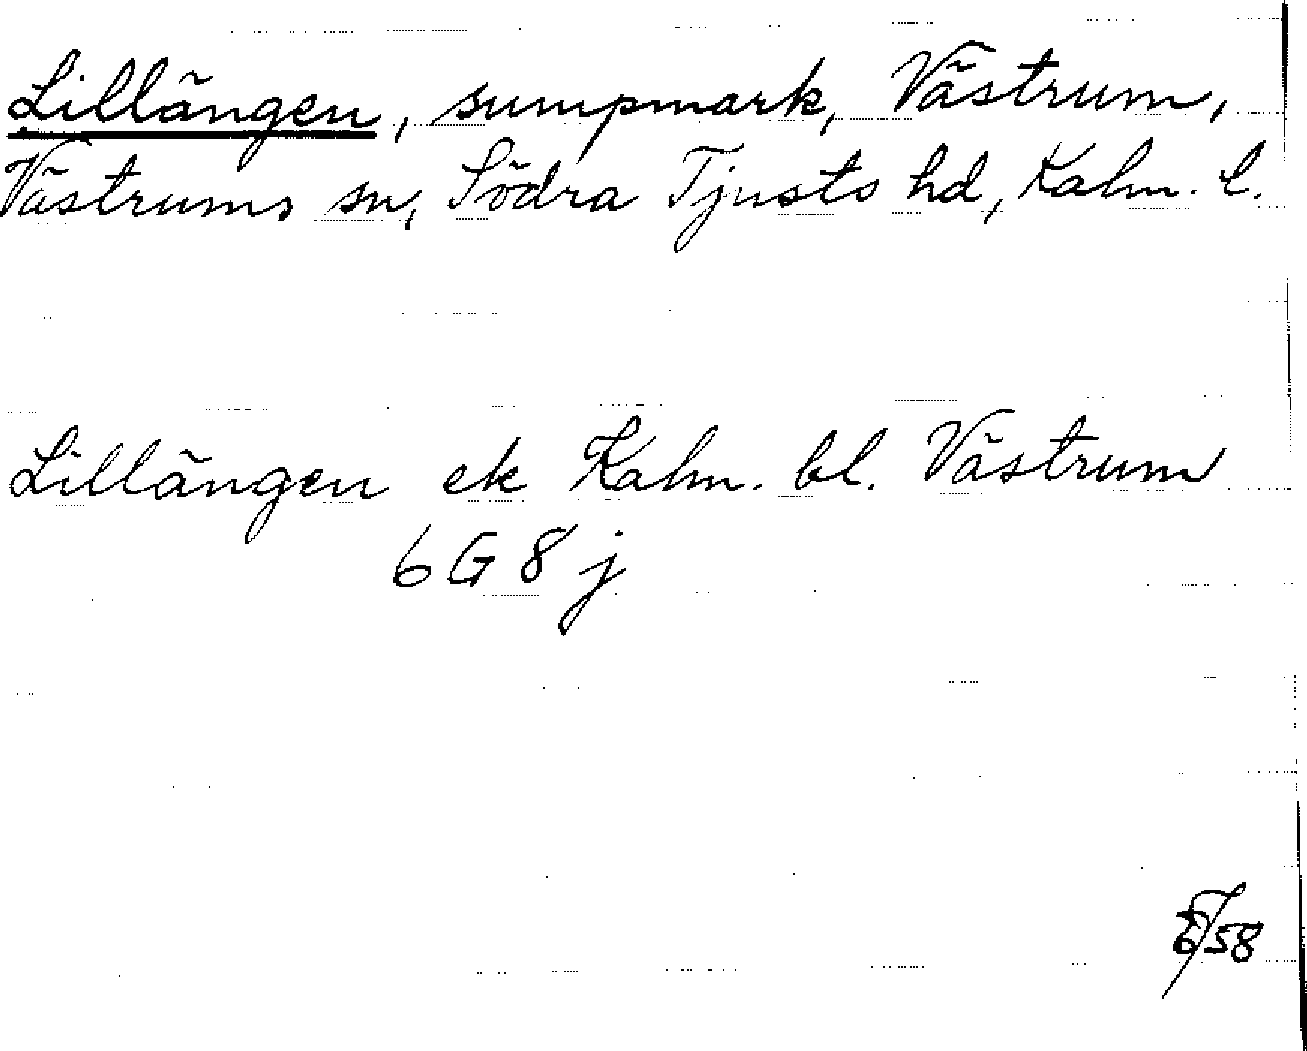 Lillängen, sumpmark, Västrum,
Västrums sn, Södra Tjusts hd, Kalm. l.
Lillängen ek Kalm. bl. Västrum
6 G 8 j
/58